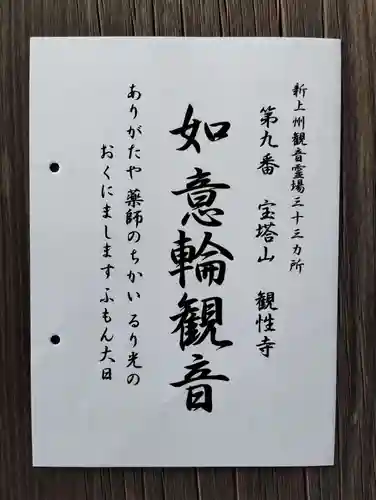 新上州観音霊場三十三カ所
第九番 宝塔山 観性寺
如意輪観音
ありがたや 薬師のちかい るり光の
おくにまします ふもん大日